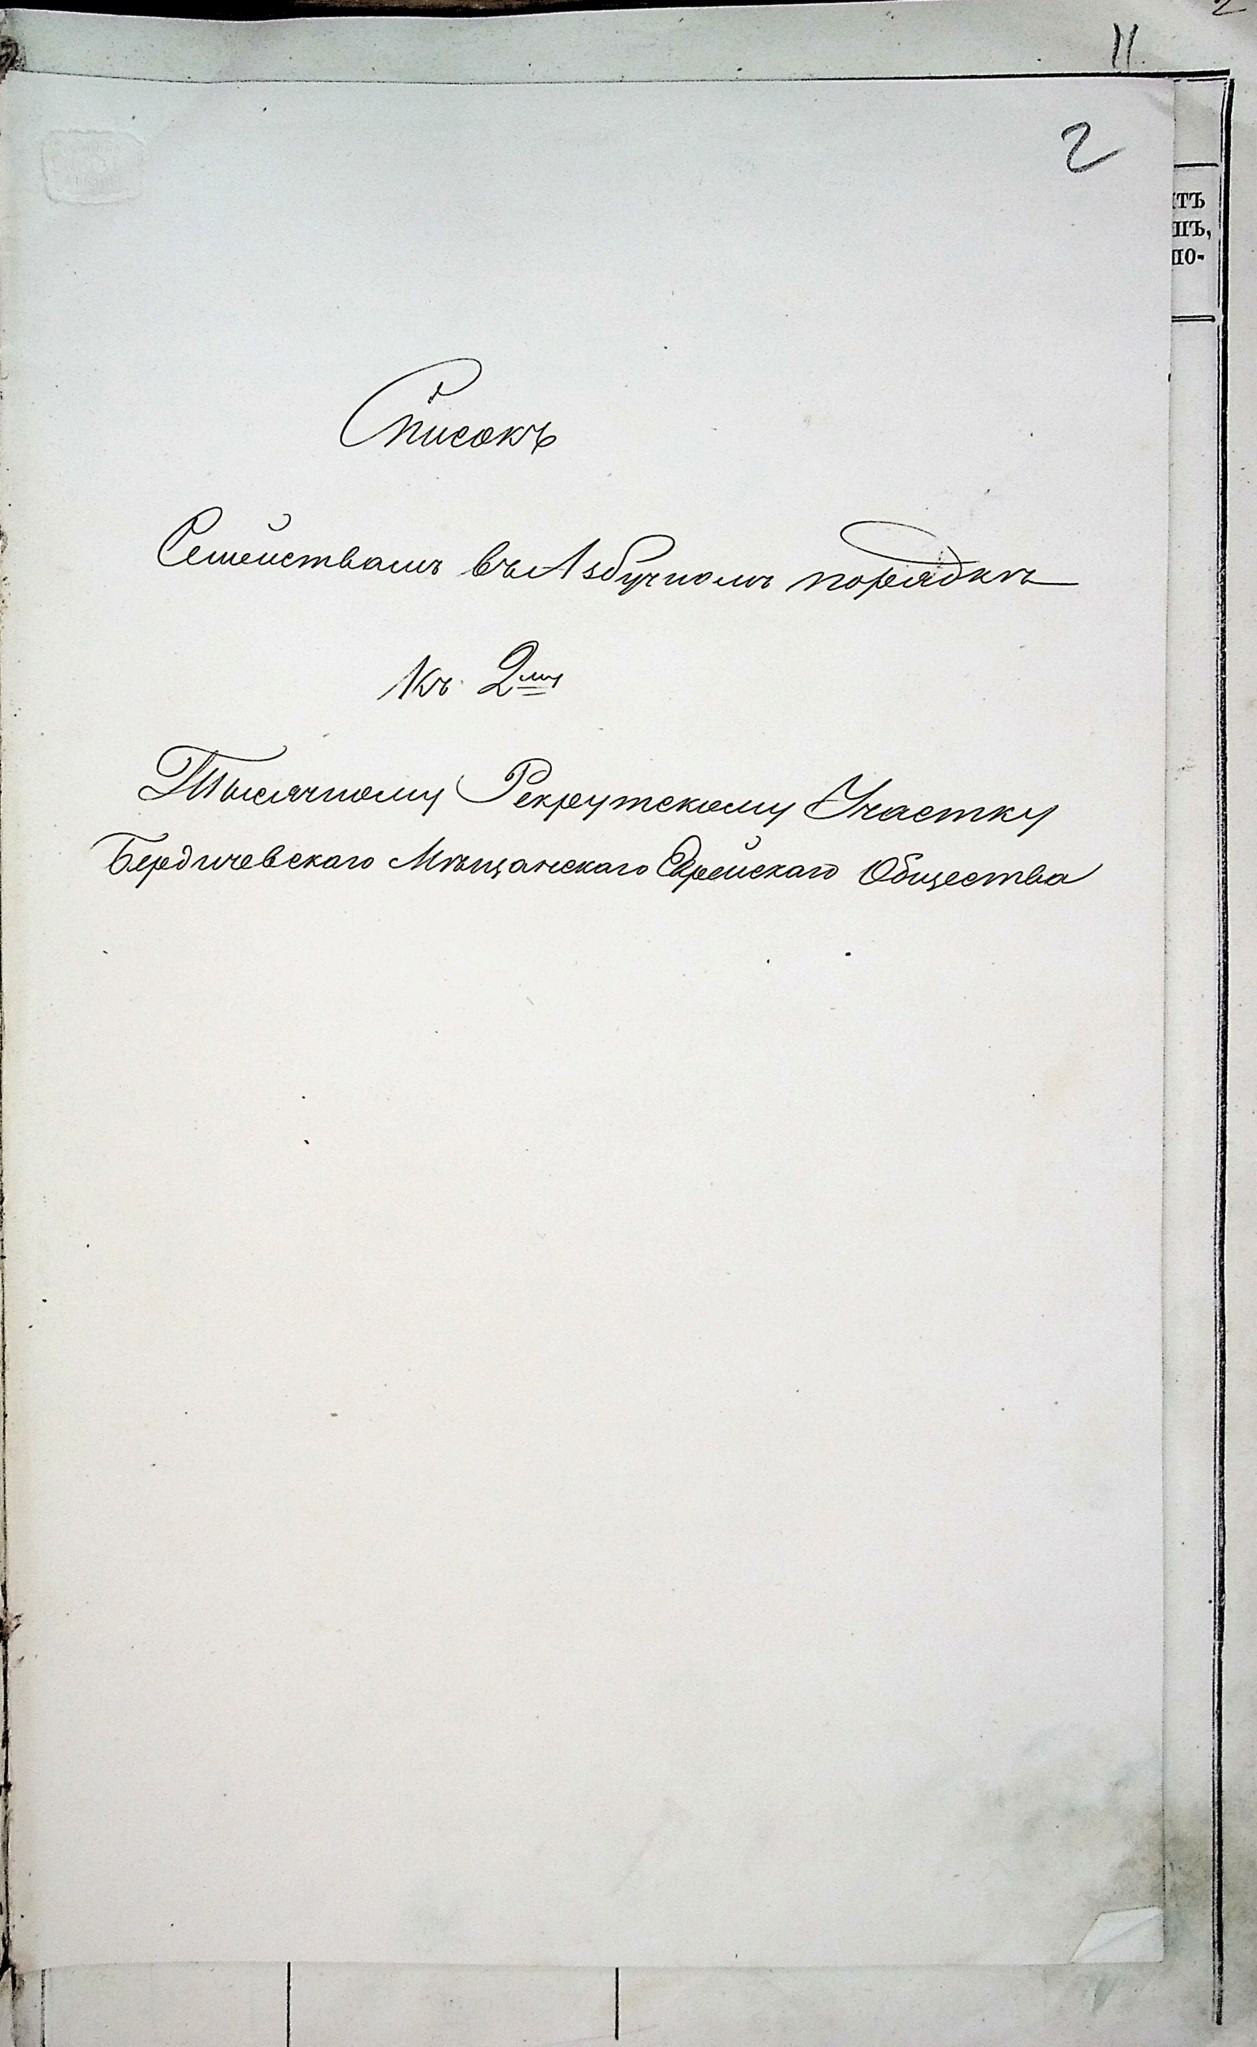 11.
2
итъ
шъ,
по-
Списокъ
Семействамъ въ Азбучномъ порядкѣ
Къ 2му
Тысячному Рекрутскому Участку
Бердичевскаго Мѣщанскаго Еврейскаго Общества